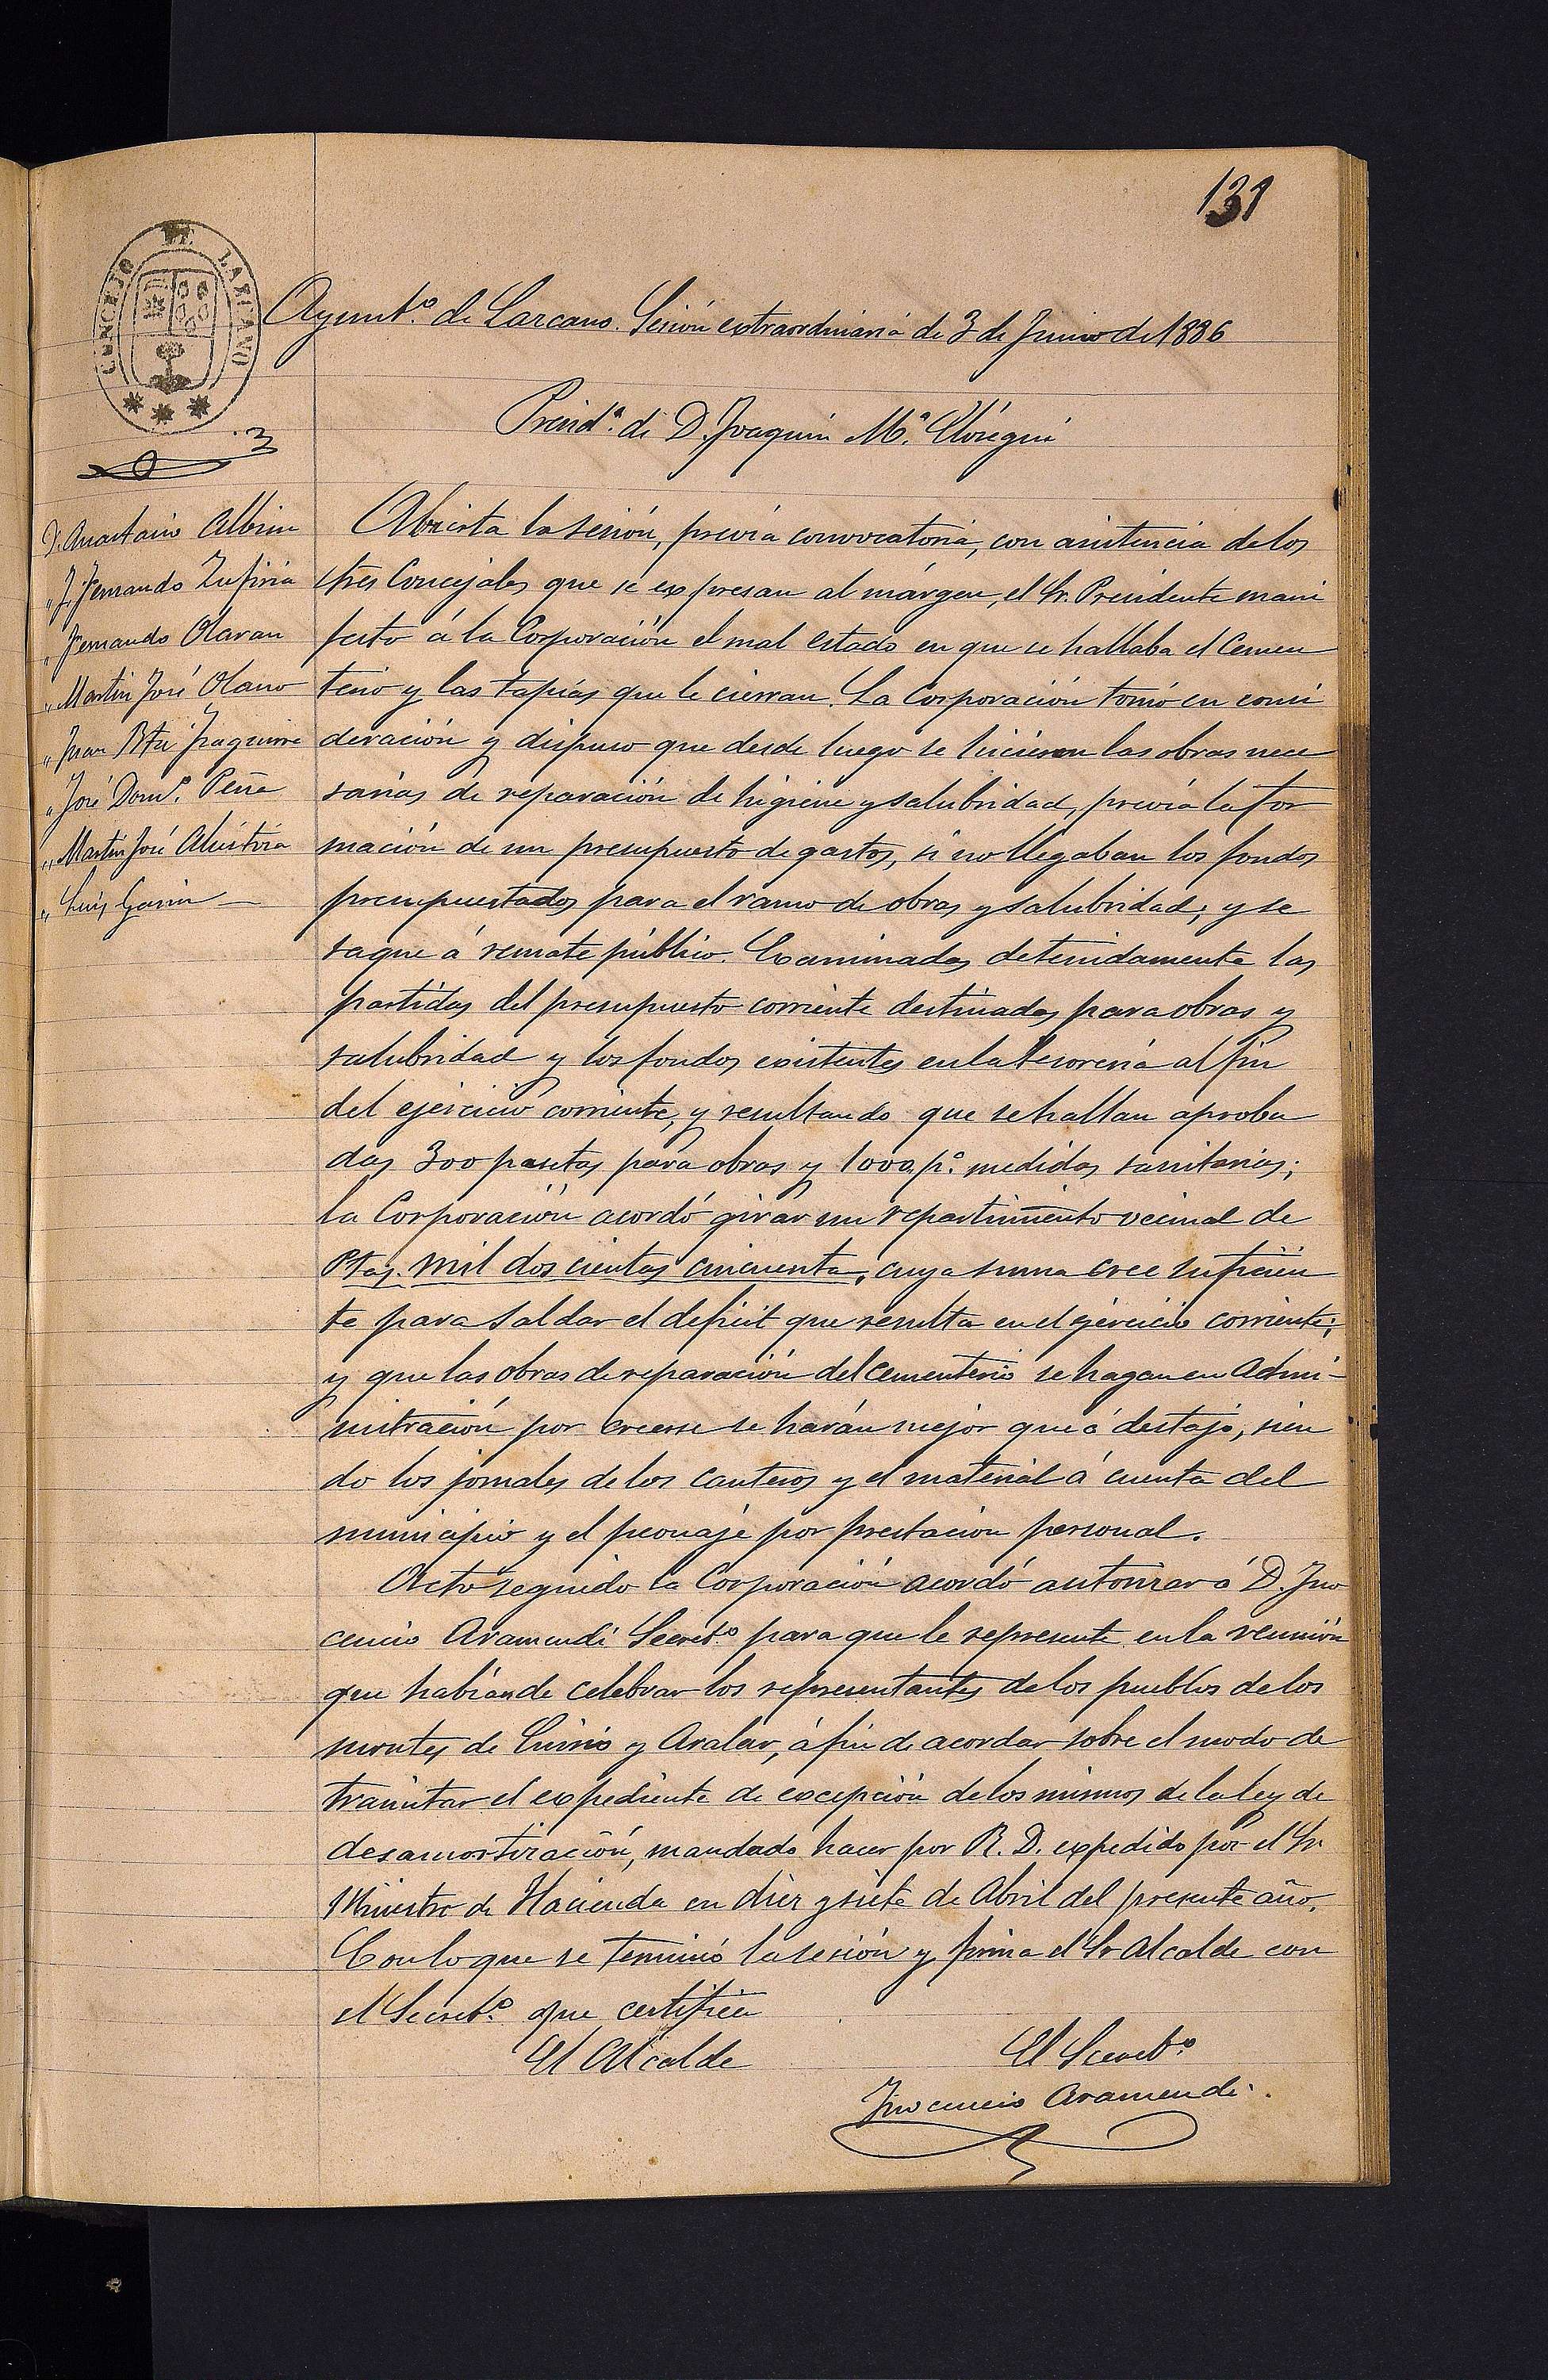 131
CONCEJO DE LAZCANO
Ayuntº. de Lazcano. Sesión extraordinaria de 3 de Junio de 1886
Presidª. de D. Joaquin Mª. Elósegui
3
D. Anastasio Albisu
" J. Fernando Zufiria
" Fernando Olaran
" Martin José Olano
" Juan Btª Iraguirre
" José Domº. Peña
" Martin José Aluistiza
" Luis Garin —
Abierta la sesión, previa convocatoria, con asistencia de los
Sres Concejales que se expresan al márgen, el Sr. Presidente mani
festo á la Corporación el mal estado en que se hallaba el Cemen
terio y las tapias que le cierran. La Corporación tomó en consi
deración y dispuso que desde luego se hicieren las obras nece
sarias de reparación de higiene y salubridad, previa la for
mación de un presupuesto de gastos, si no llegaban los fondos
presupuestados para el ramo de obras y salubridad; y se
saque á remate público. Examinadas detenidamente las
partidas del presupuesto corriente destinadas para obras y
salubridad y los fondos existentes en la Tesoreria al fin
del ejercicio corriente, y resultando que se hallan aproba
das 300 pesetas para obras y 1000 pº. medidas sanitarias;
la Corporación acordó girar un repartimiento vecinal de
Ptas. mil dos cientas cincuenta, cuya suma cree suficien
te para saldar el deficit que resulta en el ejercicio corriente;
y que las obras de reparación del cementerio se hagan en Admi-
nistración por creerse se harán mejor que á destajo, sien
do los jornales de los canteros y el material á cuenta del
municipio y el peonaje por prestación personal.
Acto seguido la Corporación acordó autorizar á D. Ino
cencio Aramendi Secretº. para que le represente en la reunión
que habian de celebrar los representantes de los pueblos de los
montes de Enirio y Aralar, á fin de acordar sobre el modo de
tramitar el expediente de excepción de los mismos de la ley de
desamortización, mandado hacer por R. D. expedido por el Sr.
Ministro de Hacienda en diez y siete de Abril del presente año.
Con lo que se terminó la sesión y firma el Sr Alcalde con
el Secretº. que certifica
El Alcalde
El Secretº.
Inocencio Aramendi.